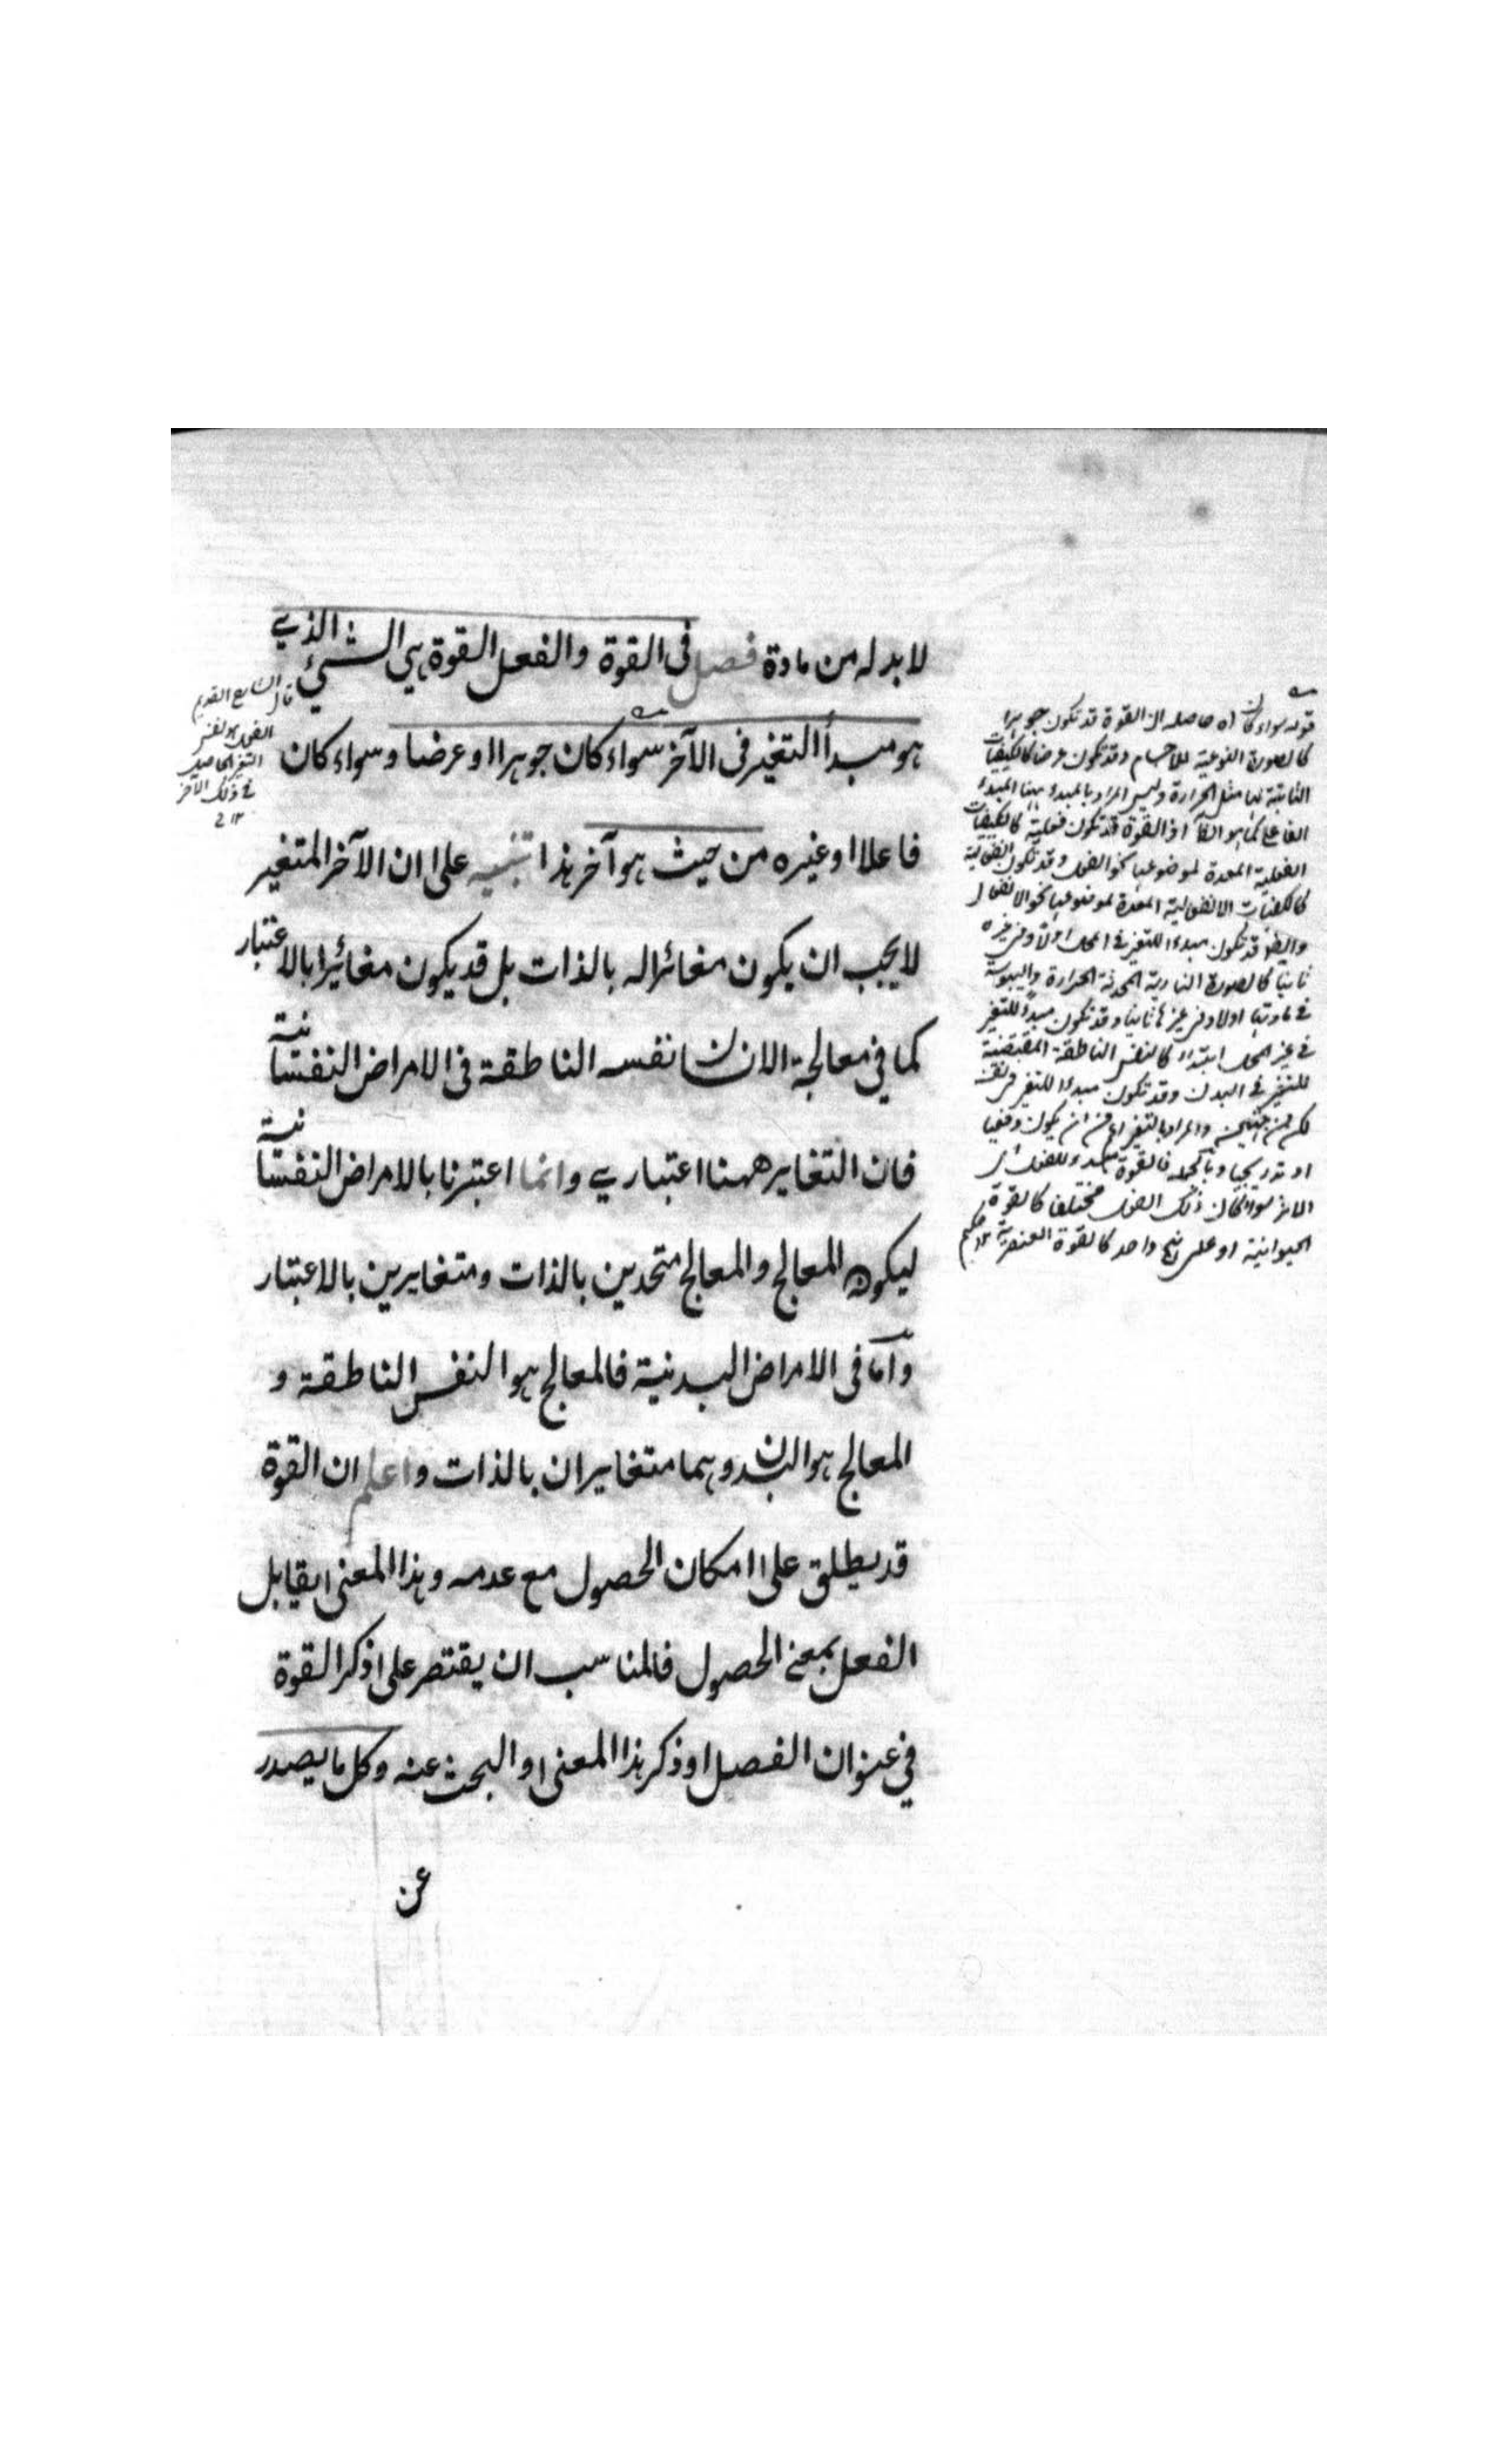 لا بد له من مادة فصل فى القوة والفعل القوة هي الشئ الذي
هو مبدأ التغير فى الآخر سواء كان جوهرا او عرضا وسواء كان
فاعلا او غيره من حيث هو آخر هذا تنبيه على ان الآخر المتغير
لا يجب ان يكون مغائرا له بالذات بل قد يكون مغائرا بالاعتبار
كما في معالجة الانسان نفسه الناطقة فى الامراض النفسانية
فان التغاير ههنا اعتباري وانما اعتبرنا بالامراض النفسانية
ليكون المعالج والمعالج متحدين بالذات ومتغايرين بالاعتبار
وأما فى الامراض البدنية فالمعالج هو النفس الناطقة و
المعالج هو البدن وهما متغايران بالذات واعلم ان القوة
قد يطلق على امكان الحصول مع عدمه وهذا المعنى يقابل
الفعل بمعنى الحصول فالمناسب ان يقتصر على ذكر القوة
في عنوان الفصل او ذكر هذا المعنى او البحث عنه وكل ما يصدر
عن
قوله سواء كان اه حاصله ان القوة قد تكون جوهرا
كالصورة النوعية للاجسام وقد تكون عرضا كالكيفيات
الثابتة لها مثل الحرارة وليس المراد بالمبدء ههنا المبدء
الفاعلى كما هو اذ القوة قد تكون فعلية كالكيفيات
الفعلية المعدة لموضوعها نحو الفعل وقد تكون انفعالية
كالكيفيات الانفعالية المعدة لموضوعها نحو الانفعال
وايضا قد تكون مبدءا للتغير فى المحل اولا وفى غيره
ثانيا كالصورة النارية المحدثة الحرارة واليبوسة
فى مادتها اولا وفى غيرها ثانيا وقد تكون مبدءا للتغير
فى غير المحل ابتداء كالنفس الناطقة المقتضية
للتغير فى البدن وقد تكون مبدءا للتغير فى نفسه
لكن من جهتين والمراد بالتغير اعم من ان يكون دفعيا
او تدريجيا وبالجملة فالقوة مبدء للفعل
سواء كان ذلك الفعل مختلفا كالقوة
الحيوانية او على نهج واحد كالقوة العنصرية ١٢
قال الشارح القديم
الفعل هو نفس
التغير الحاصل
فى ذلك الآخر
١٢